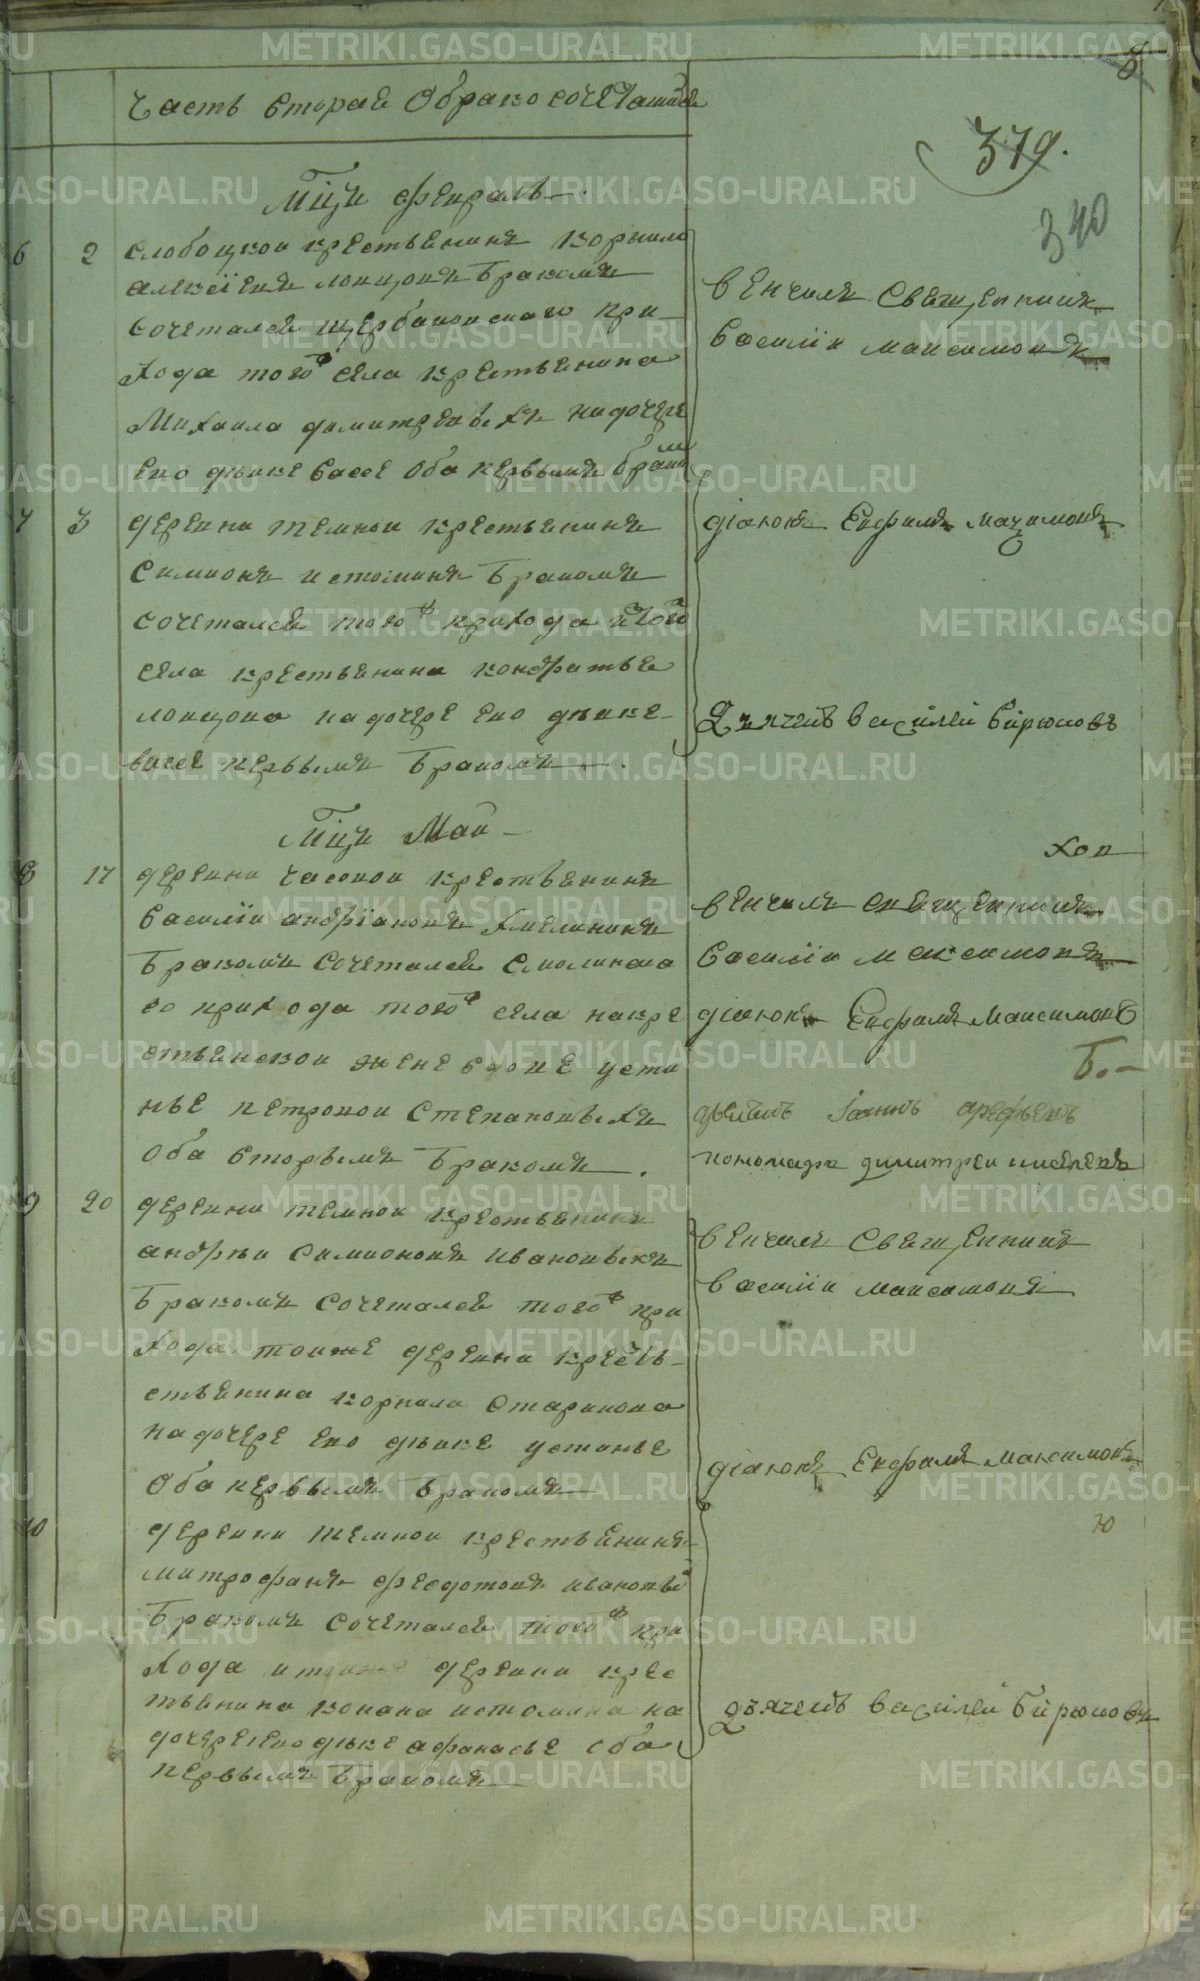 Часть вторая О бракосочетавшихся
379.
340
Мцъ февраль
6 2 слобоцкои крестьенинъ корнило
алексїевъ ловцовъ бракомъ
сочетался щербаковскаго при
хода того села крестьенина
Михаила димитревыхъ на дочере
ево девке васе оба первымъ браком
венчалъ Священникъ
Василіи максимовъ
7 3 деревни темнои крестьенинъ
Симионъ истоминъ бракомъ
сочетался того прихода и того
села крестьенина кондратья
ловцова на дочере ево девке
васе первымъ бракомъ
діаконъ Евфимъ Мацимовъ
Дьячекъ василей бирюковъ
Мцъ Маи
8 17 деревни часовои крестьенинъ
Василїи андрїановъ Хмелининъ
бракомъ сочетался Смолинска
го прихода того села на кре
стьенскои жене вдове усти
нье петровои Степановыхъ
оба вторымъ бракомъ
коп
венчалъ священникъ
Василіи максимовъ
діаконъ Евфимъ Максимовъ
Б.
дьячекъ Іаннъ арефьевъ
пономарь димитреи киселевъ
9 20 деревни темнои крестьенинъ
андреи Симионовъ ивановыхъ
бракомъ сочетался того при
хода тоиже деревни кресть
стьенина корнила Старикова
на дочере ево девке устинье
Оба первымъ бракомъ
венчалъ Священникъ
василіи максимовъ
діаконъ Евфимъ Максимовъ
ю
10 деревни темнои крестьенинъ
митрофанъ федотовъ ивановы
бракомъ сочетался того при
хода деревни крес
тьенина конана истомина на
дочере ево девке афанасье оба
первымъ бракомъ
дьячекъ василей бирюковъ
METRIKI.GASO-URAL.RU